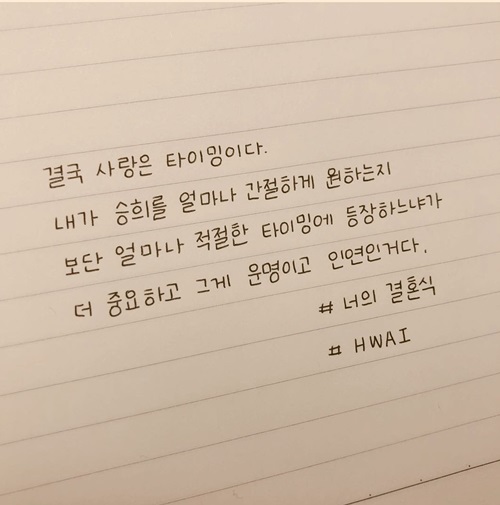 결국 사랑은 타이밍이다.
내가 승희를 얼마나 간절하게 원하는지
보단 얼마나 적절한 타이밍에 등장하느냐가
더 중요하고 그게 운명이고 인연인거다.
# 너의 결혼식
# HWAI